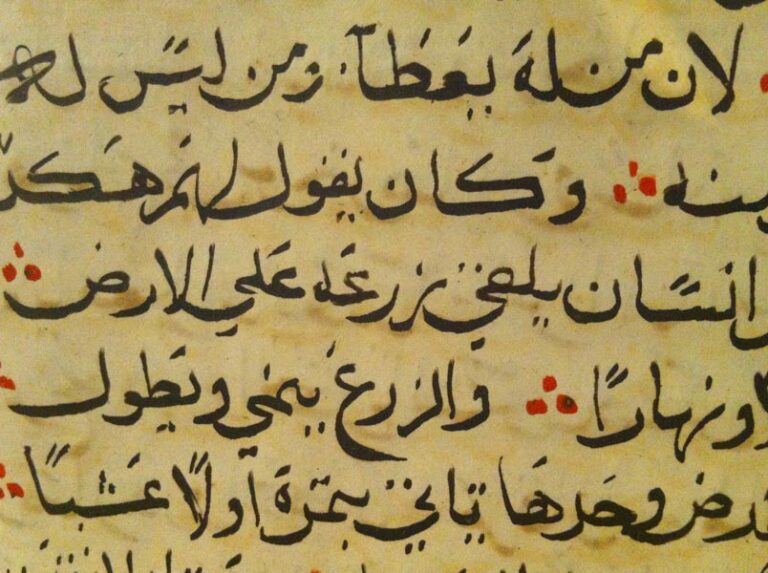 لان من له يعطآ ومن ليس له
منه ۞ وكان يقول لهم هكذ
انسان يلقي زرعه علي الارض
ونهارًا والزرع ينمي ويطول
رض وحدها تاتي بثمرة اولًا عشبًا